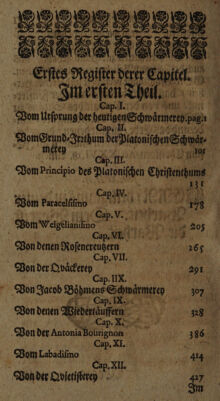 Erstes Register derer Capitel.
Im ersten Theil.
Cap. I.
Vom Ursprung der heutigen Schwärmerey. pag. 1
Cap. II.
Vom Grund-Irrthum der Platonischen Schwär-
merey 101
Cap. III.
Vom Principio des Platonischen Christenthums
131
Cap. IV.
Vom Paracelsismo 178
Cap. V.
Vom Weigelianismo 205
Cap. VI.
Von denen Rosencreutzern 265
Cap. VII.
Von der Qväckerey 291
Cap. IIX.
Von Jacob Böhmens Schwärmerey 307
Cap. IX.
Von denen Wiedertäuffern 328
Cap. X.
Von der Antonia Bourignon 386
Cap. XI.
Vom Labadismo 414
Cap. XII.
Von der Qvietisterey 427
Im